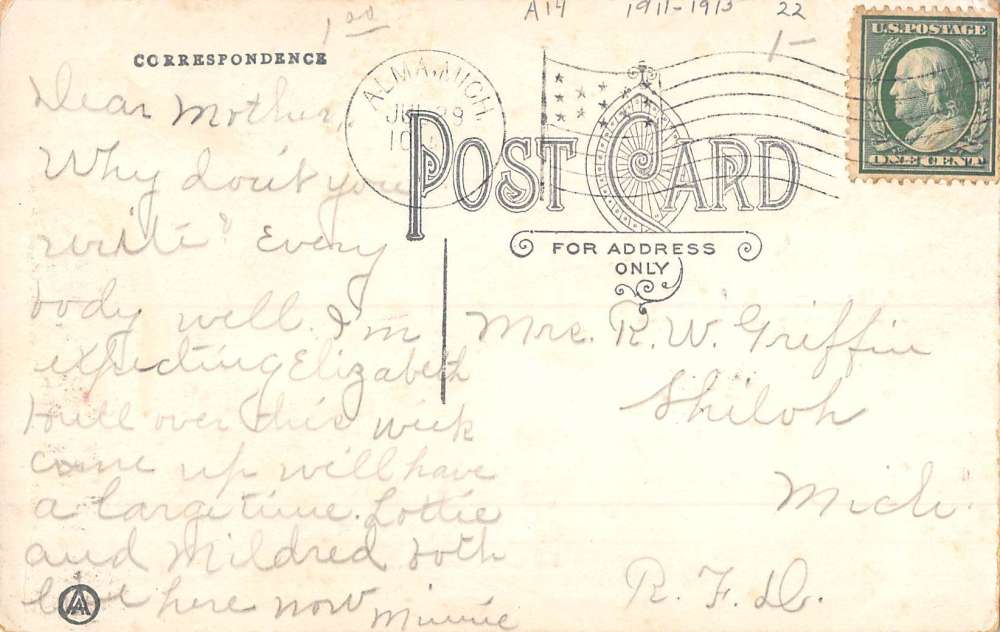 A14 1911-1915 22
1 00
1-
CORRESPONDENCE
U.S. POSTAGE
ONE CENT
ALMA, MICH.
10
POST CARD
FOR ADDRESS
ONLY
Dear Mother
Why don't you
write? Every
body well. I'm
expecting Elizabeth
Hull over this week
come up will have
a large time. Lottie
and Mildred both
here now Minnie
Mrs. R. W. Griffin
Shiloh
Mich.
R. F. D.